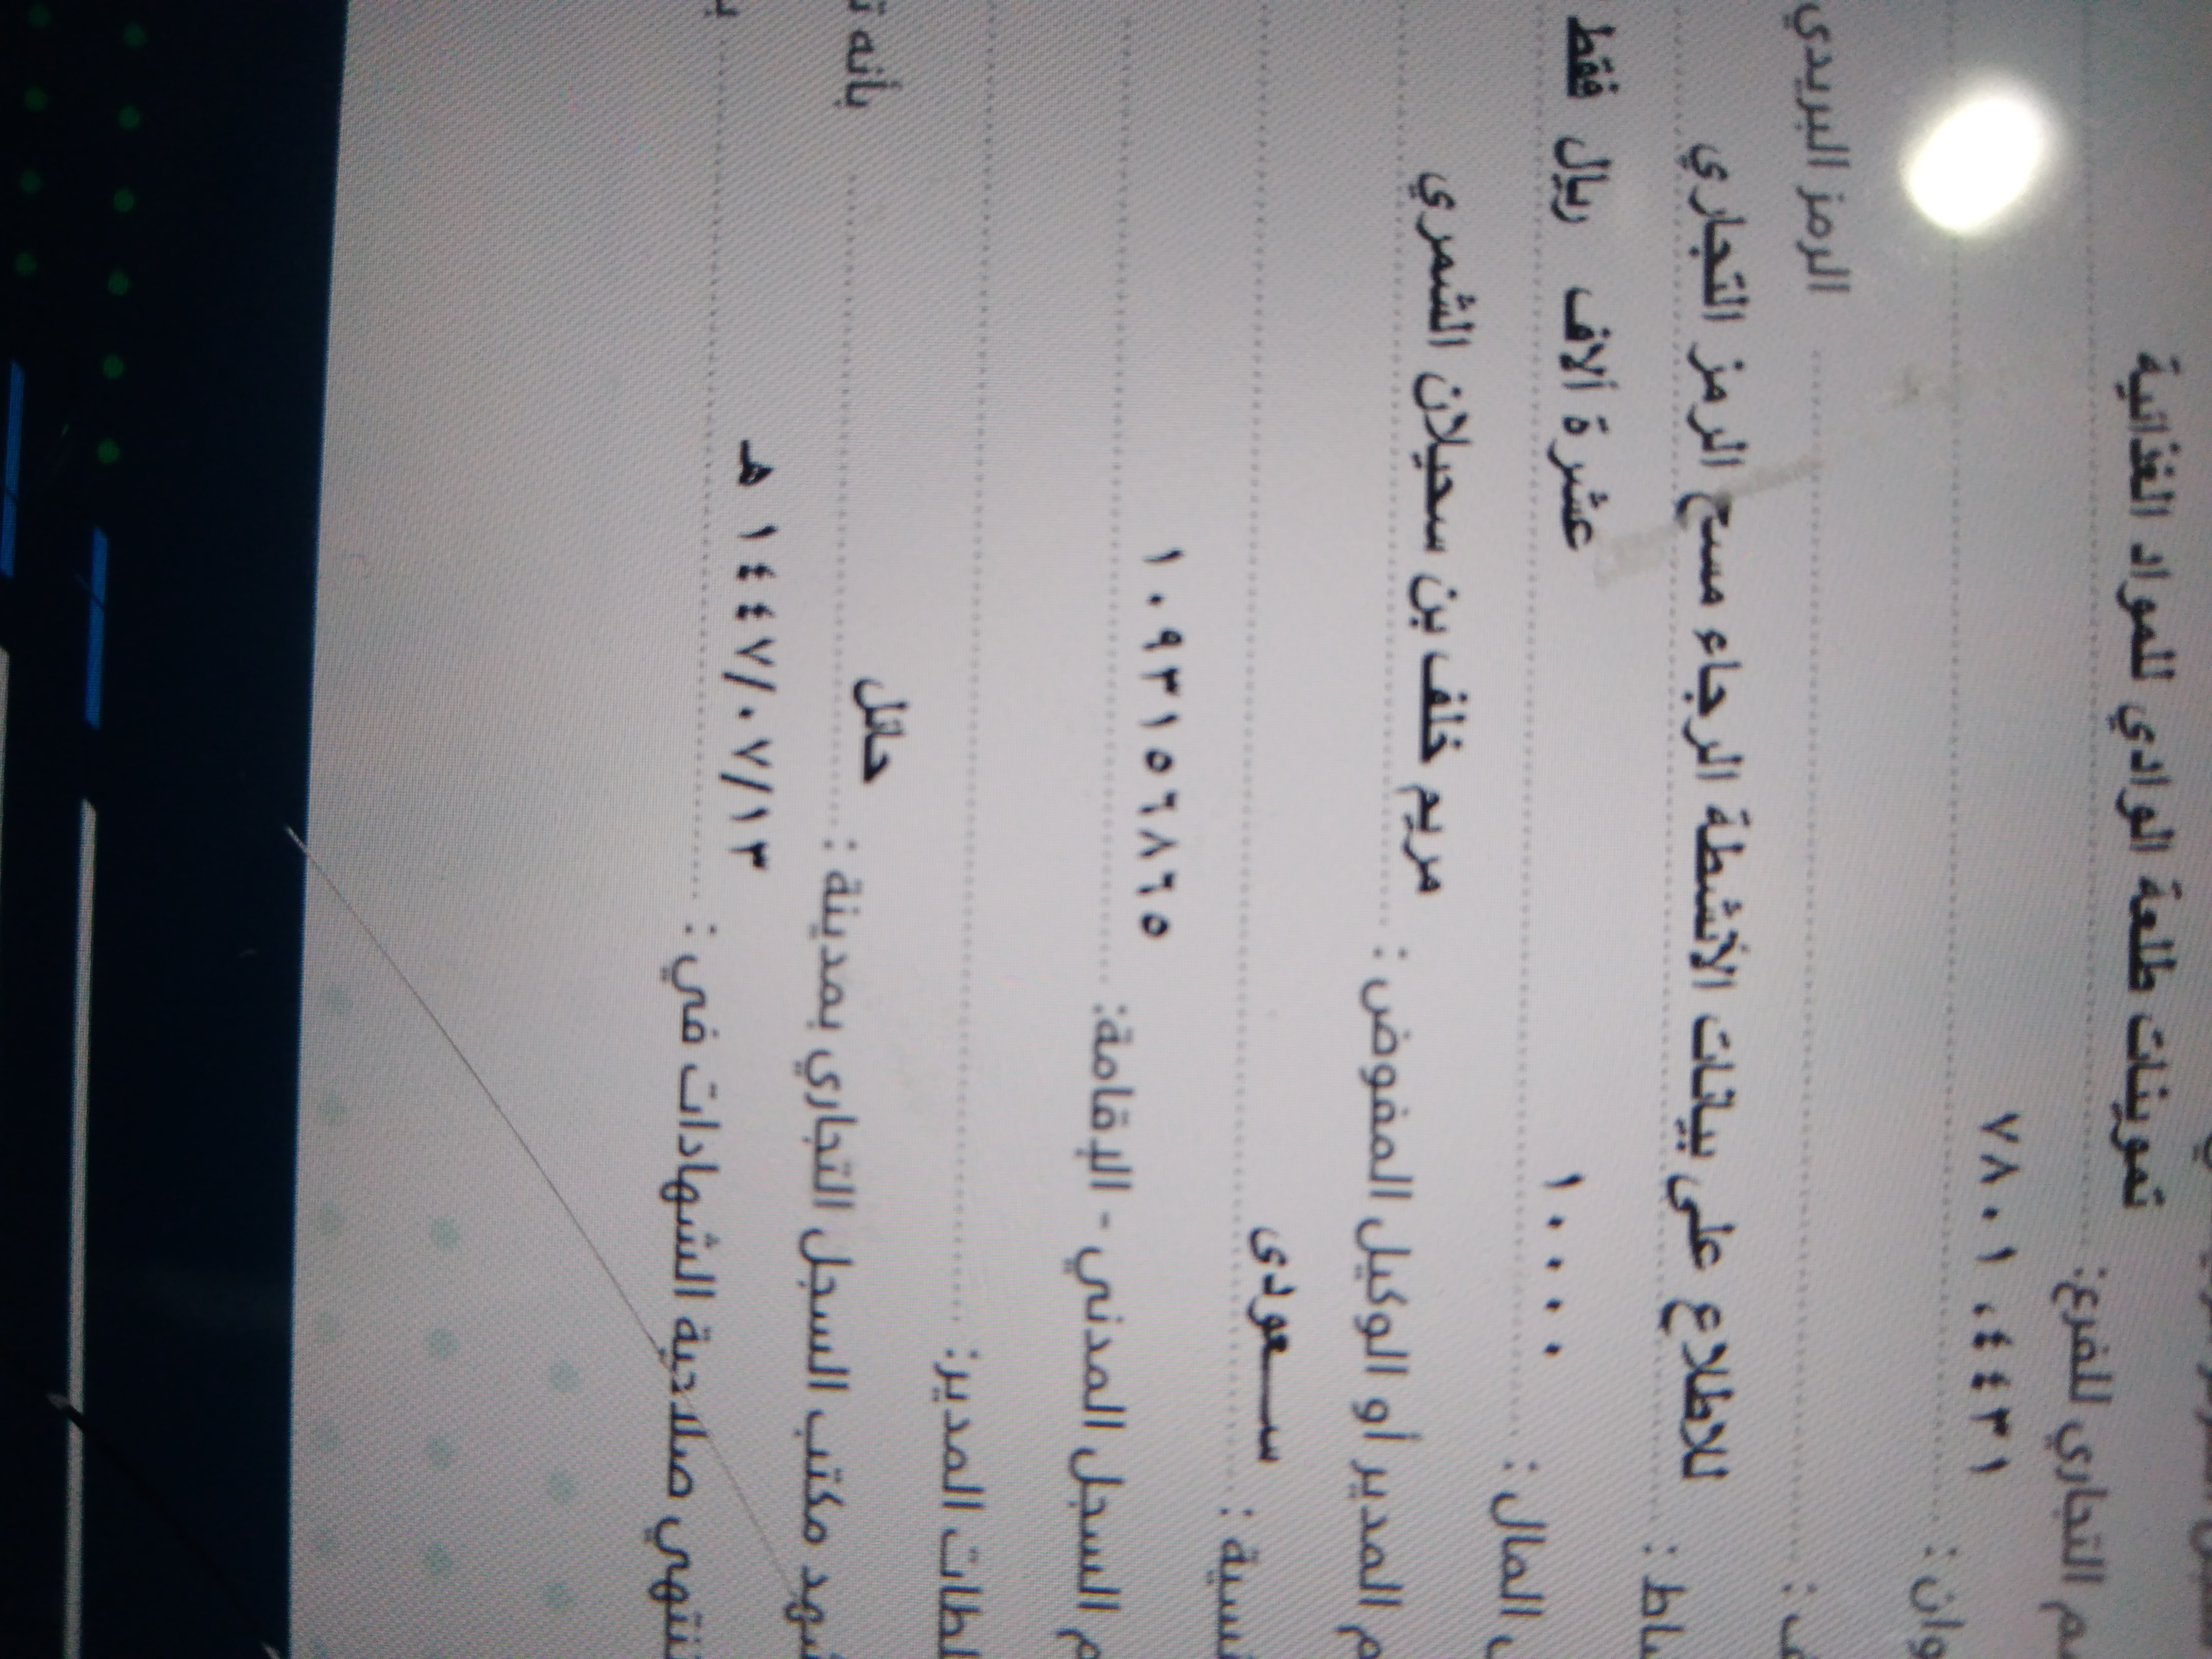 تموينات طلعة الوادي للمواد الغذائية
التجاري للفرع:
٧٨٠١،٤٤٣١
الرمز البريدي
للاطلاع على بيانات الأنشطة الرجاء مسح الرمز التجاري
المال : ١٠٠٠٠ عشرة ألاف ريال فقط
المدير أو الوكيل المفوض : مريم خلف بن سحيلان الشمري
سعودى
السجل المدني - الإقامة: ١٠٩٣١٥٦٨٦٥
المدير:
مكتب السجل التجاري بمدينة : حائل بأنه
صلاحية الشهادات في : ١٤٤٧/٠٧/١٣ هـ